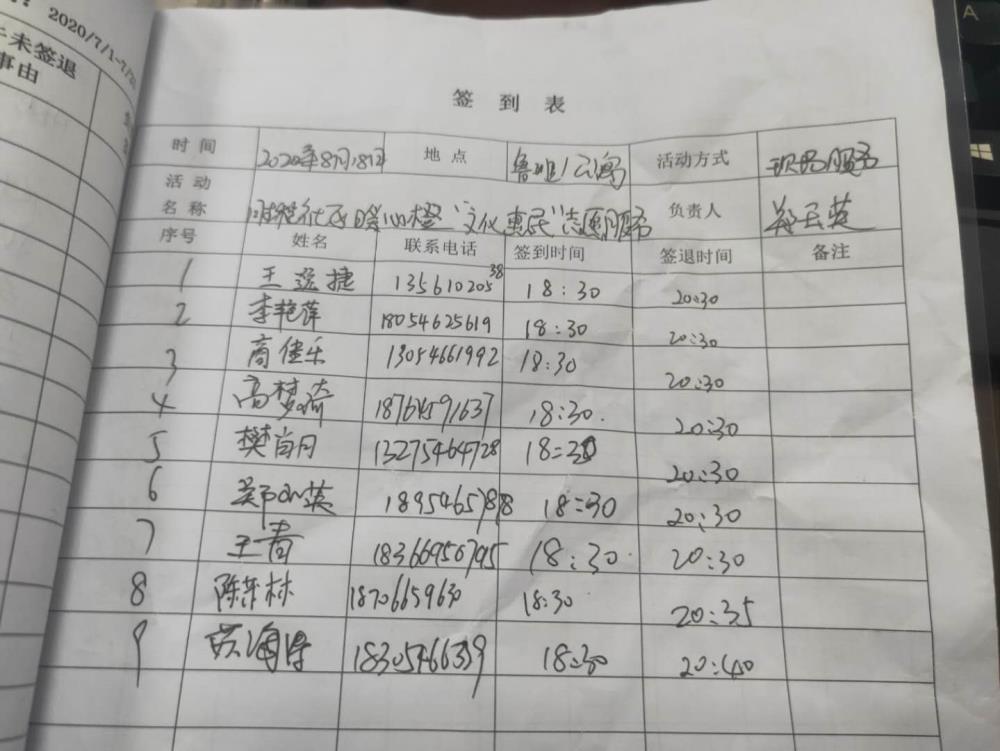 2020/7/1-7/
未签退
事由
签到表
时间 2020年8月18日 地点 鲁班公寓 活动方式 现场服务
活动
名称 暖心橙“文化惠民”志愿服务 负责人
序号 姓名 联系电话 签到时间 签退时间 备注
1 王 捷 13561020538 18:30 20:30
2 李艳萍 18054625619 18:30 20:30
3 高佳乐 13054661992 18:30 20:30
4 高梦 18764591637 18:30 20:30
5 樊 月 13275464728 18:30 20:30
6 英 18:30 20:30
7 王青 18366950795 18:30 20:30
8 陈 林 18706659630 18:30 20:35
9 海 18:30 20:40
A